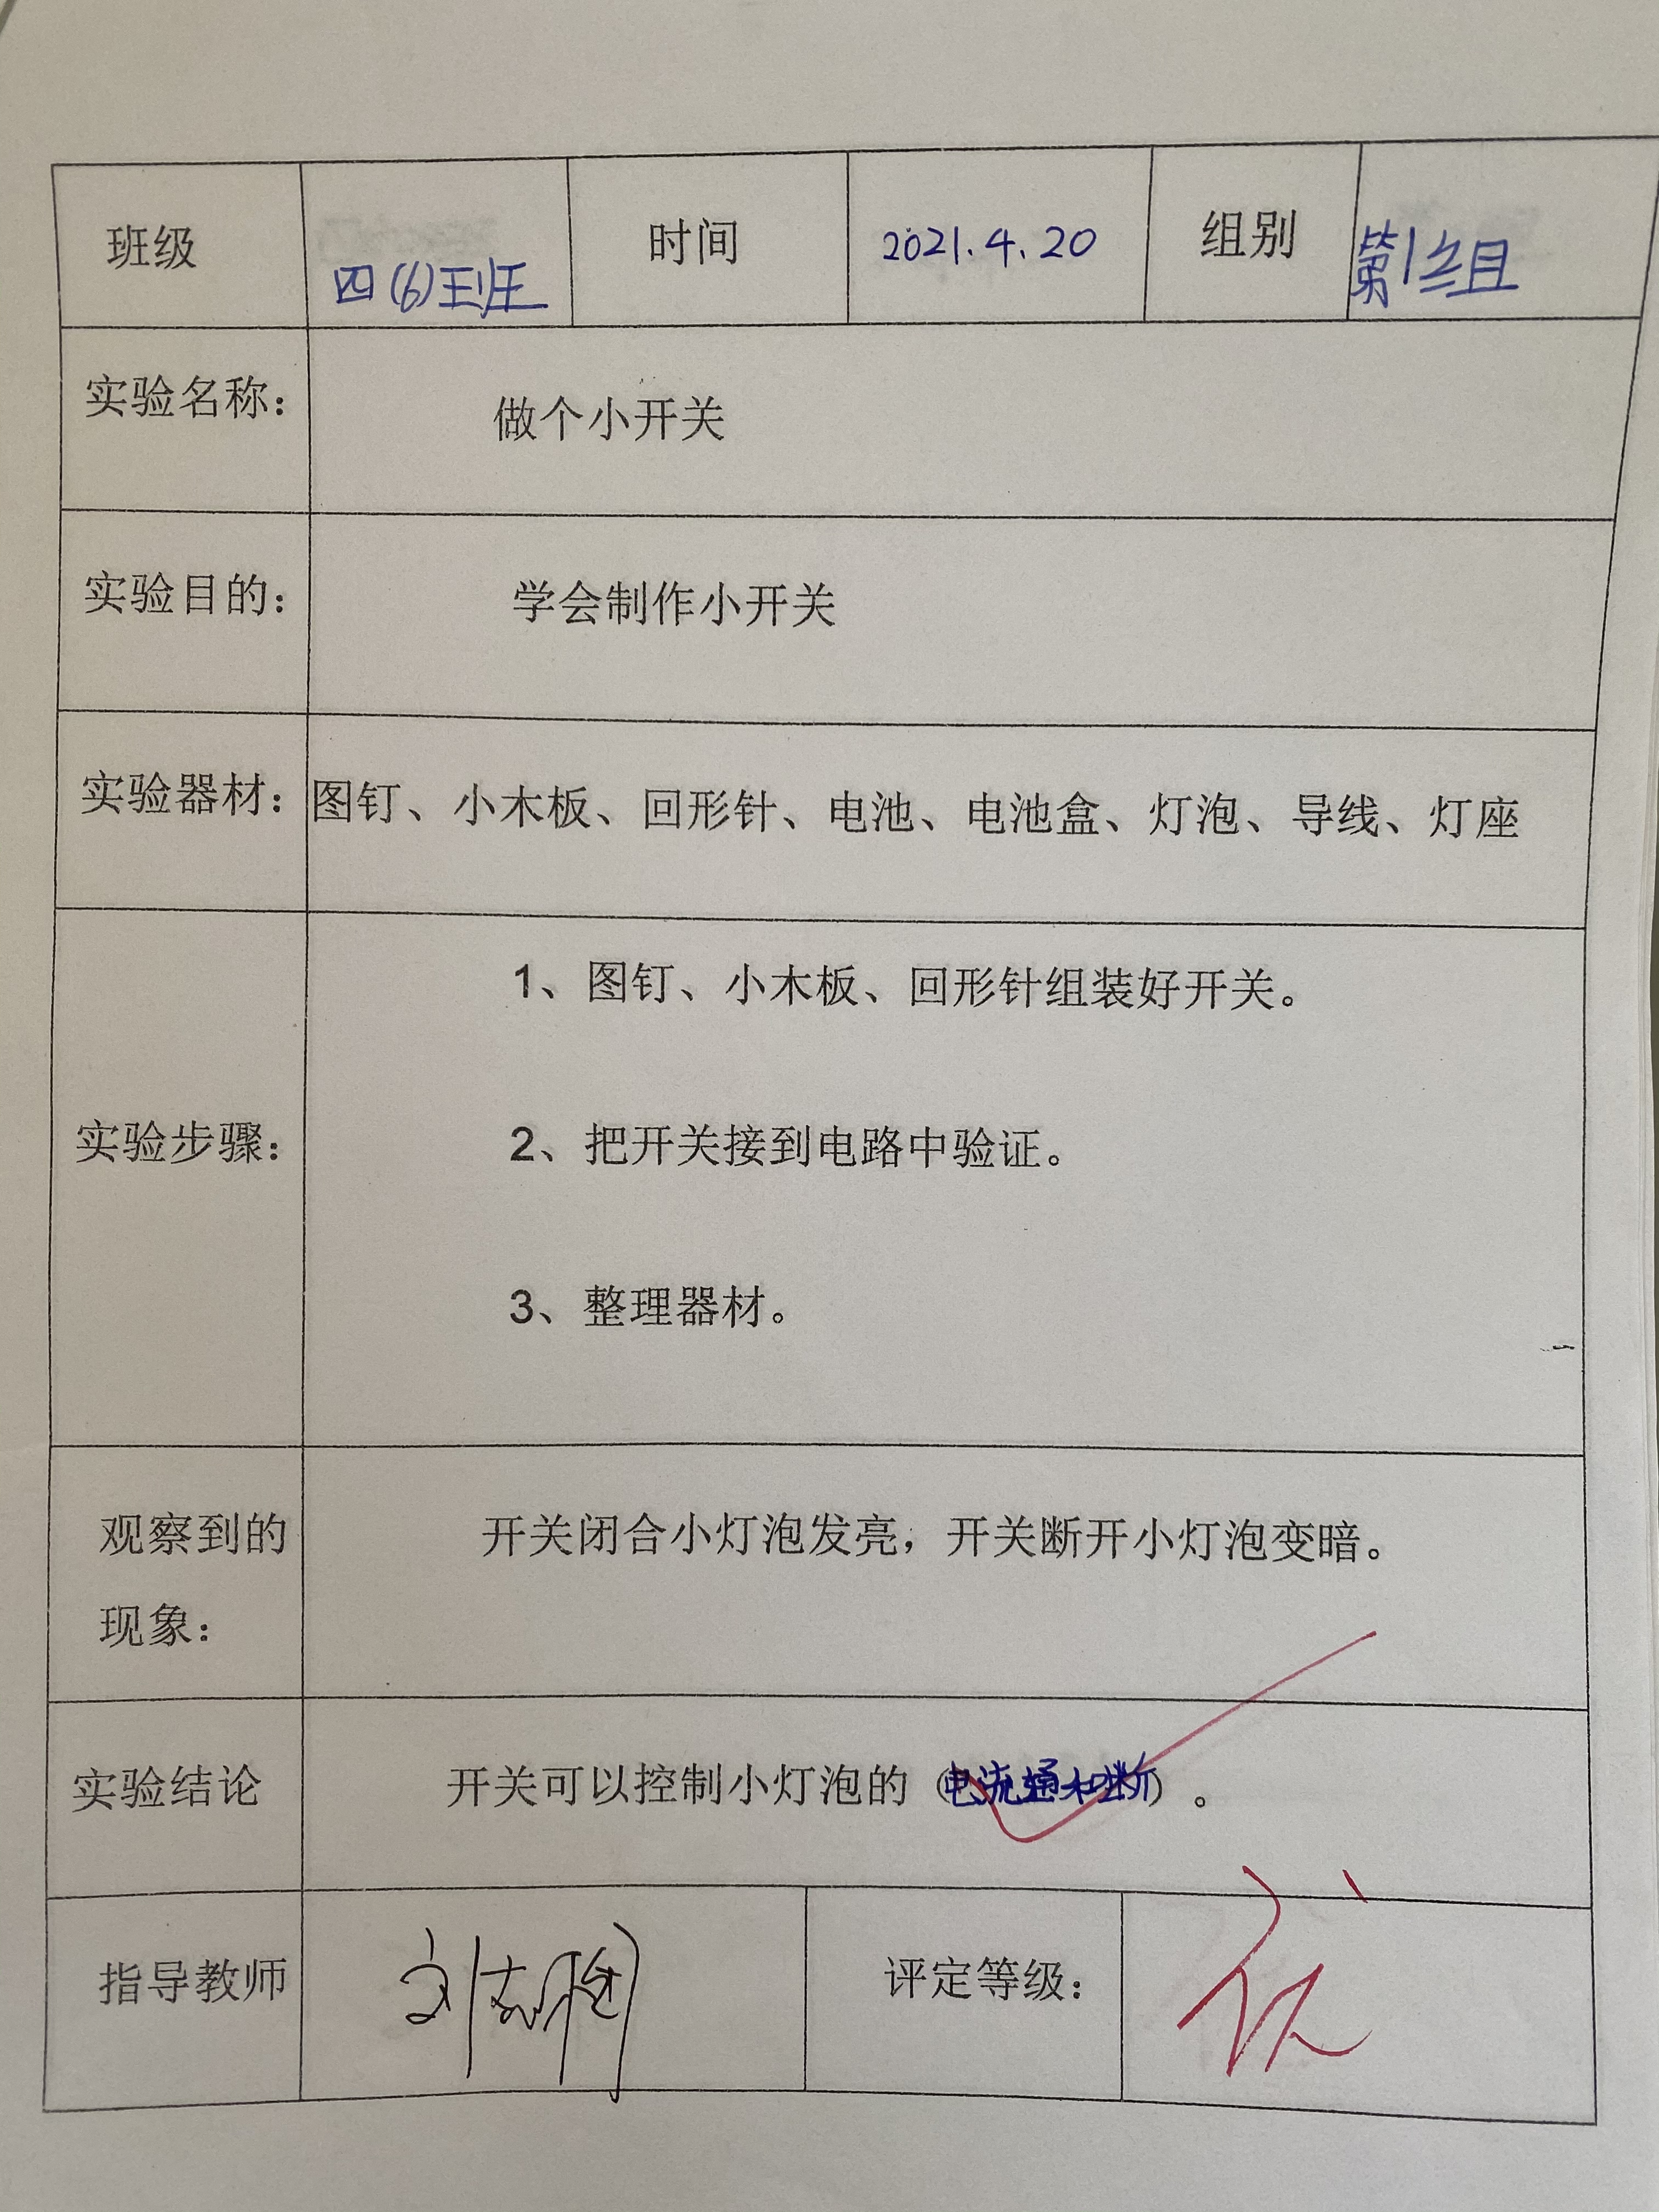 班级 四(6)班 时间 2021.4.20 组别 第1组
实验名称： 做个小开关
实验目的： 学会制作小开关
实验器材： 图钉、小木板、回形针、电池、电池盒、灯泡、导线、灯座
1、图钉、小木板、回形针组装好开关。
实验步骤： 2、把开关接到电路中验证。
3、整理器材。
观察到的 开关闭合小灯泡发亮，开关断开小灯泡变暗。
现象：
实验结论 开关可以控制小灯泡的（电流通和断）。
指导教师 评定等级：